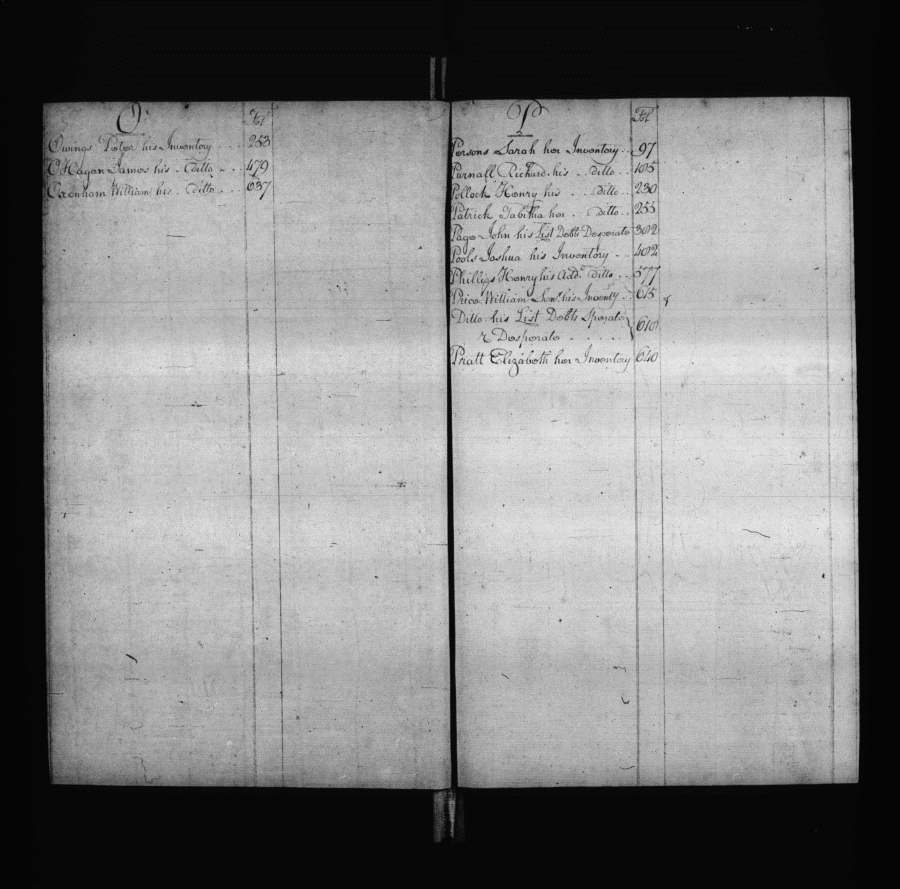 O
Fol
Owings Peter his Inventory . . . 253
O'Hagan James his . Ditto . . . 479
Oxenham William his . Ditto . . 637
P
Fol
Persons Sarah her Inventory . . 97
Purnall Richard his . . Ditto . . 185
Pollock Henry his . . Ditto . . 230
Patrick Tabitha her . . Ditto . . 255
Page John his List Debts Desperate 302
Pools Joshua his Inventory . . 402
Phillips Henry his Add. Ditto . . 577
Price William Senr. his Inventy . . 615
Ditto his List Debts Sperate
& Desperate . . . . . 618
Pratt Elizabeth her Inventory 640